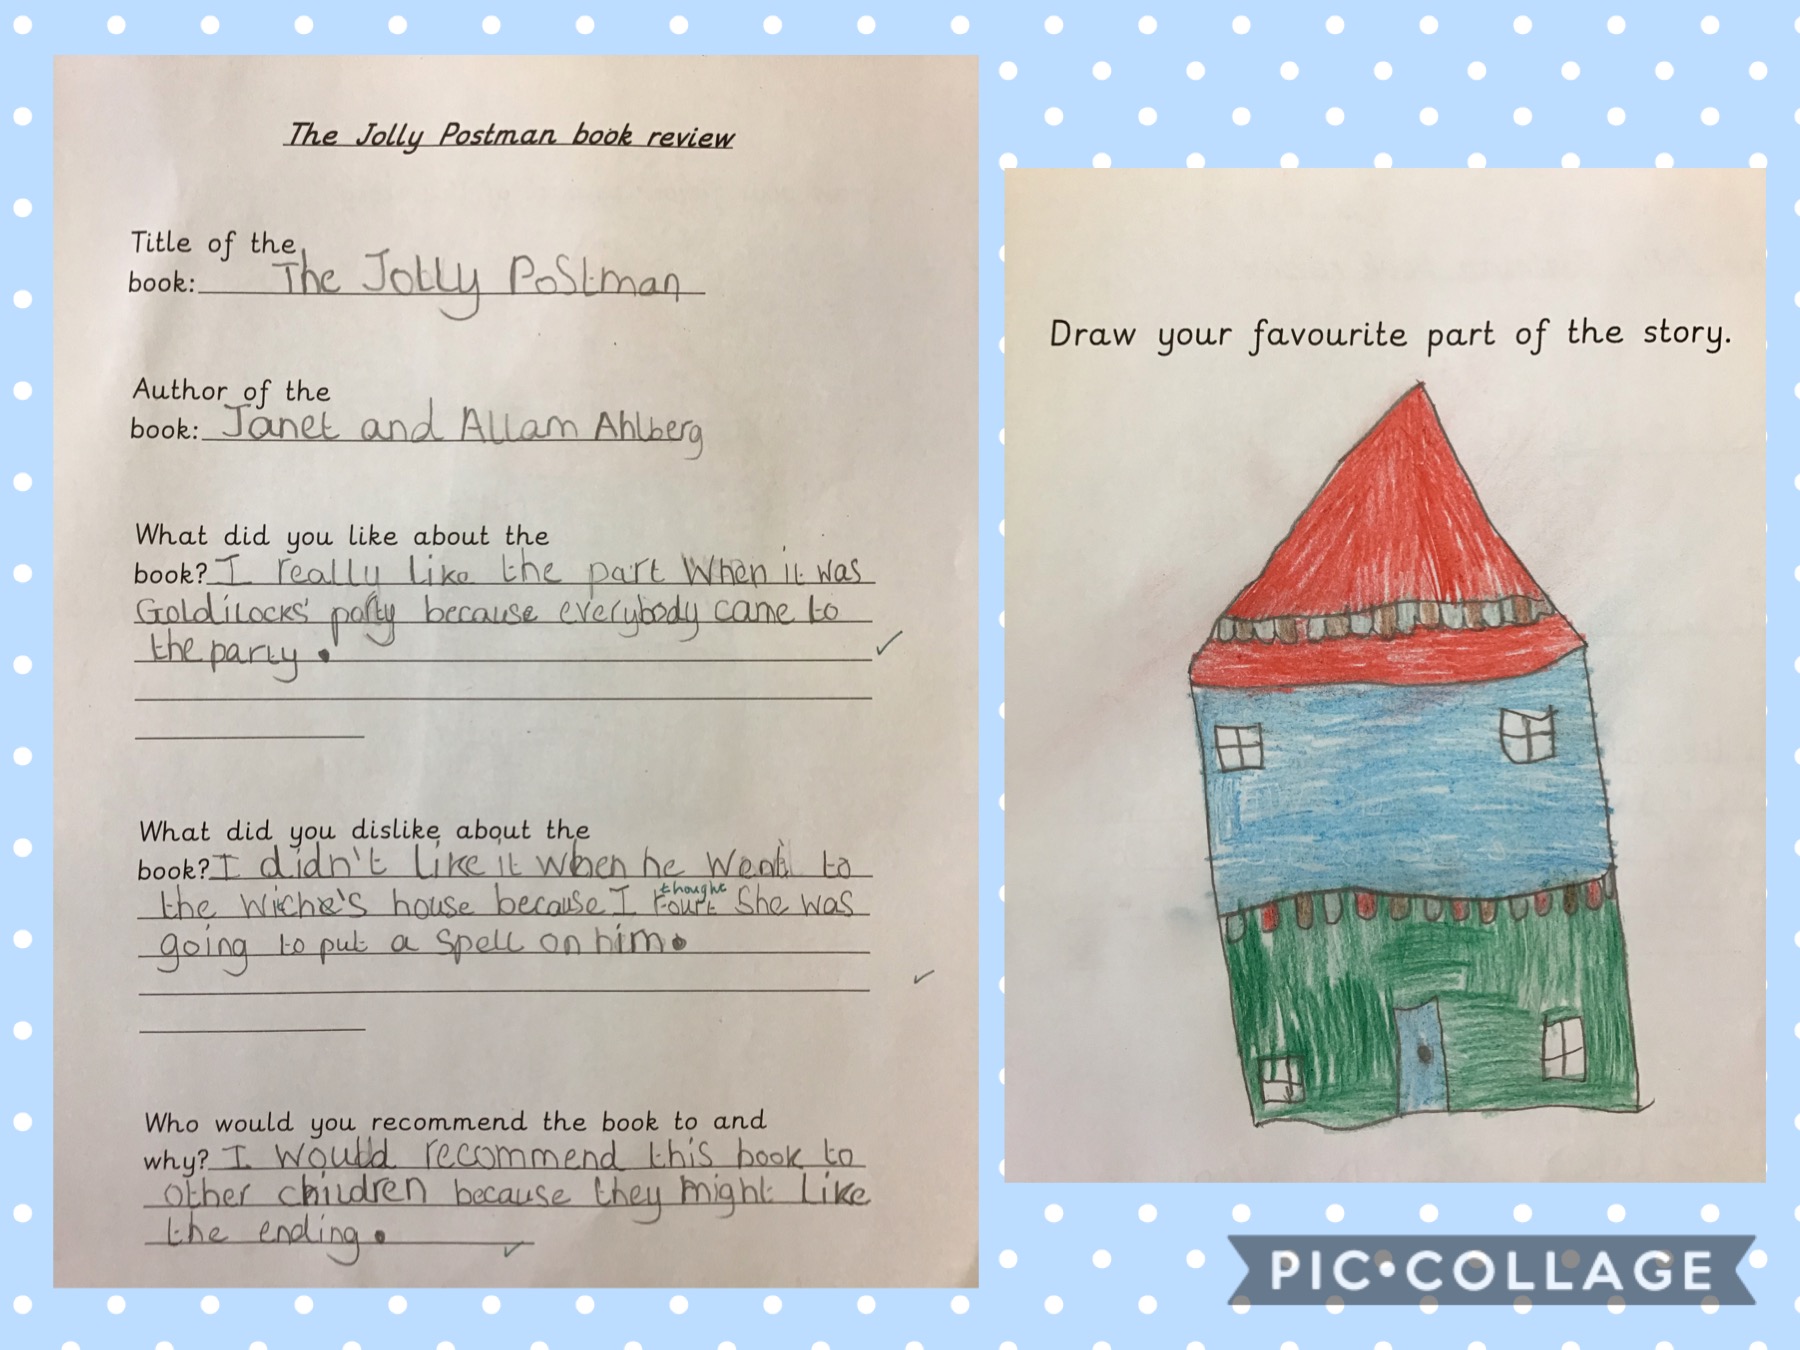 The Jolly Postman book review
Title of the
book: The Jolly Postman
Author of the
book: Janet and Allam Ahlberg
What did you like about the
book? I really like the part When it was
Goldilocks' party because everybody came to
the party.
What did you dislike about the
book? I didn't like it when he went to
the wiche's house because I thought fourt She was
going to put a spell on him.
Who would you recommend the book to and
why? I would recommend this book to
other children because they might like
the ending.
Draw your favourite part of the story.
PIC•COLLAGE